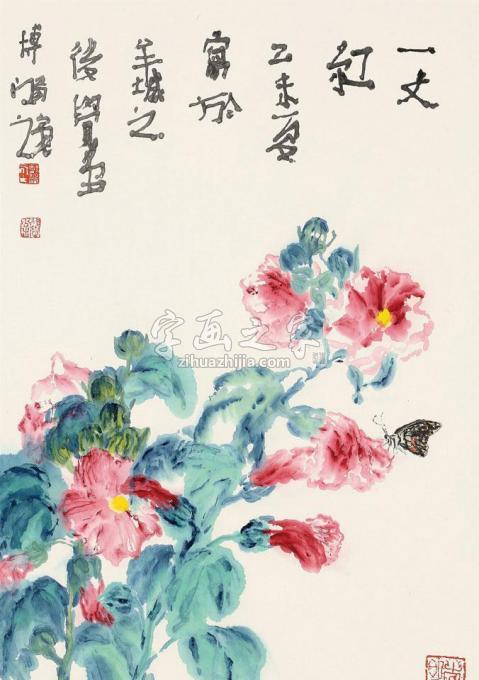 一丈
紅
乙未夏
寫於
羊城之
後
博
字画之家
zihuazhijia.com